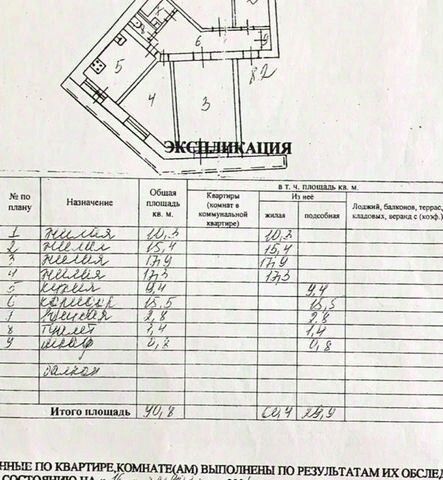 2
6
9
5
4
3
8.2
ЭКСПЛИКАЦИЯ
№ по плану Назначение Общая площадь кв. м. Квартиры (комнат в коммунальной квартире) в т. ч. площадь кв. м. Из неё жилая подсобная Лоджий, балконов, террас, кладовых, веранд с (коэф.)
1 жилая 10,3 10,3
2 жилая 15,4 15,4
3 жилая 17,9 17,9
4 жилая 17,3 17,3
5 кухня 9,4 9,4
6 коридор 15,5 15,5
7 2,8 2,8
8 туалет 1,4 1,4
9 шкаф 0,8
балкон
Итого площадь 90,8 29,9
ННЫЕ ПО КВАРТИРЕ,КОМНАТЕ(АМ) ВЫПОЛНЕНЫ ПО РЕЗУЛЬТАТАМ ИХ ОБСЛЕД